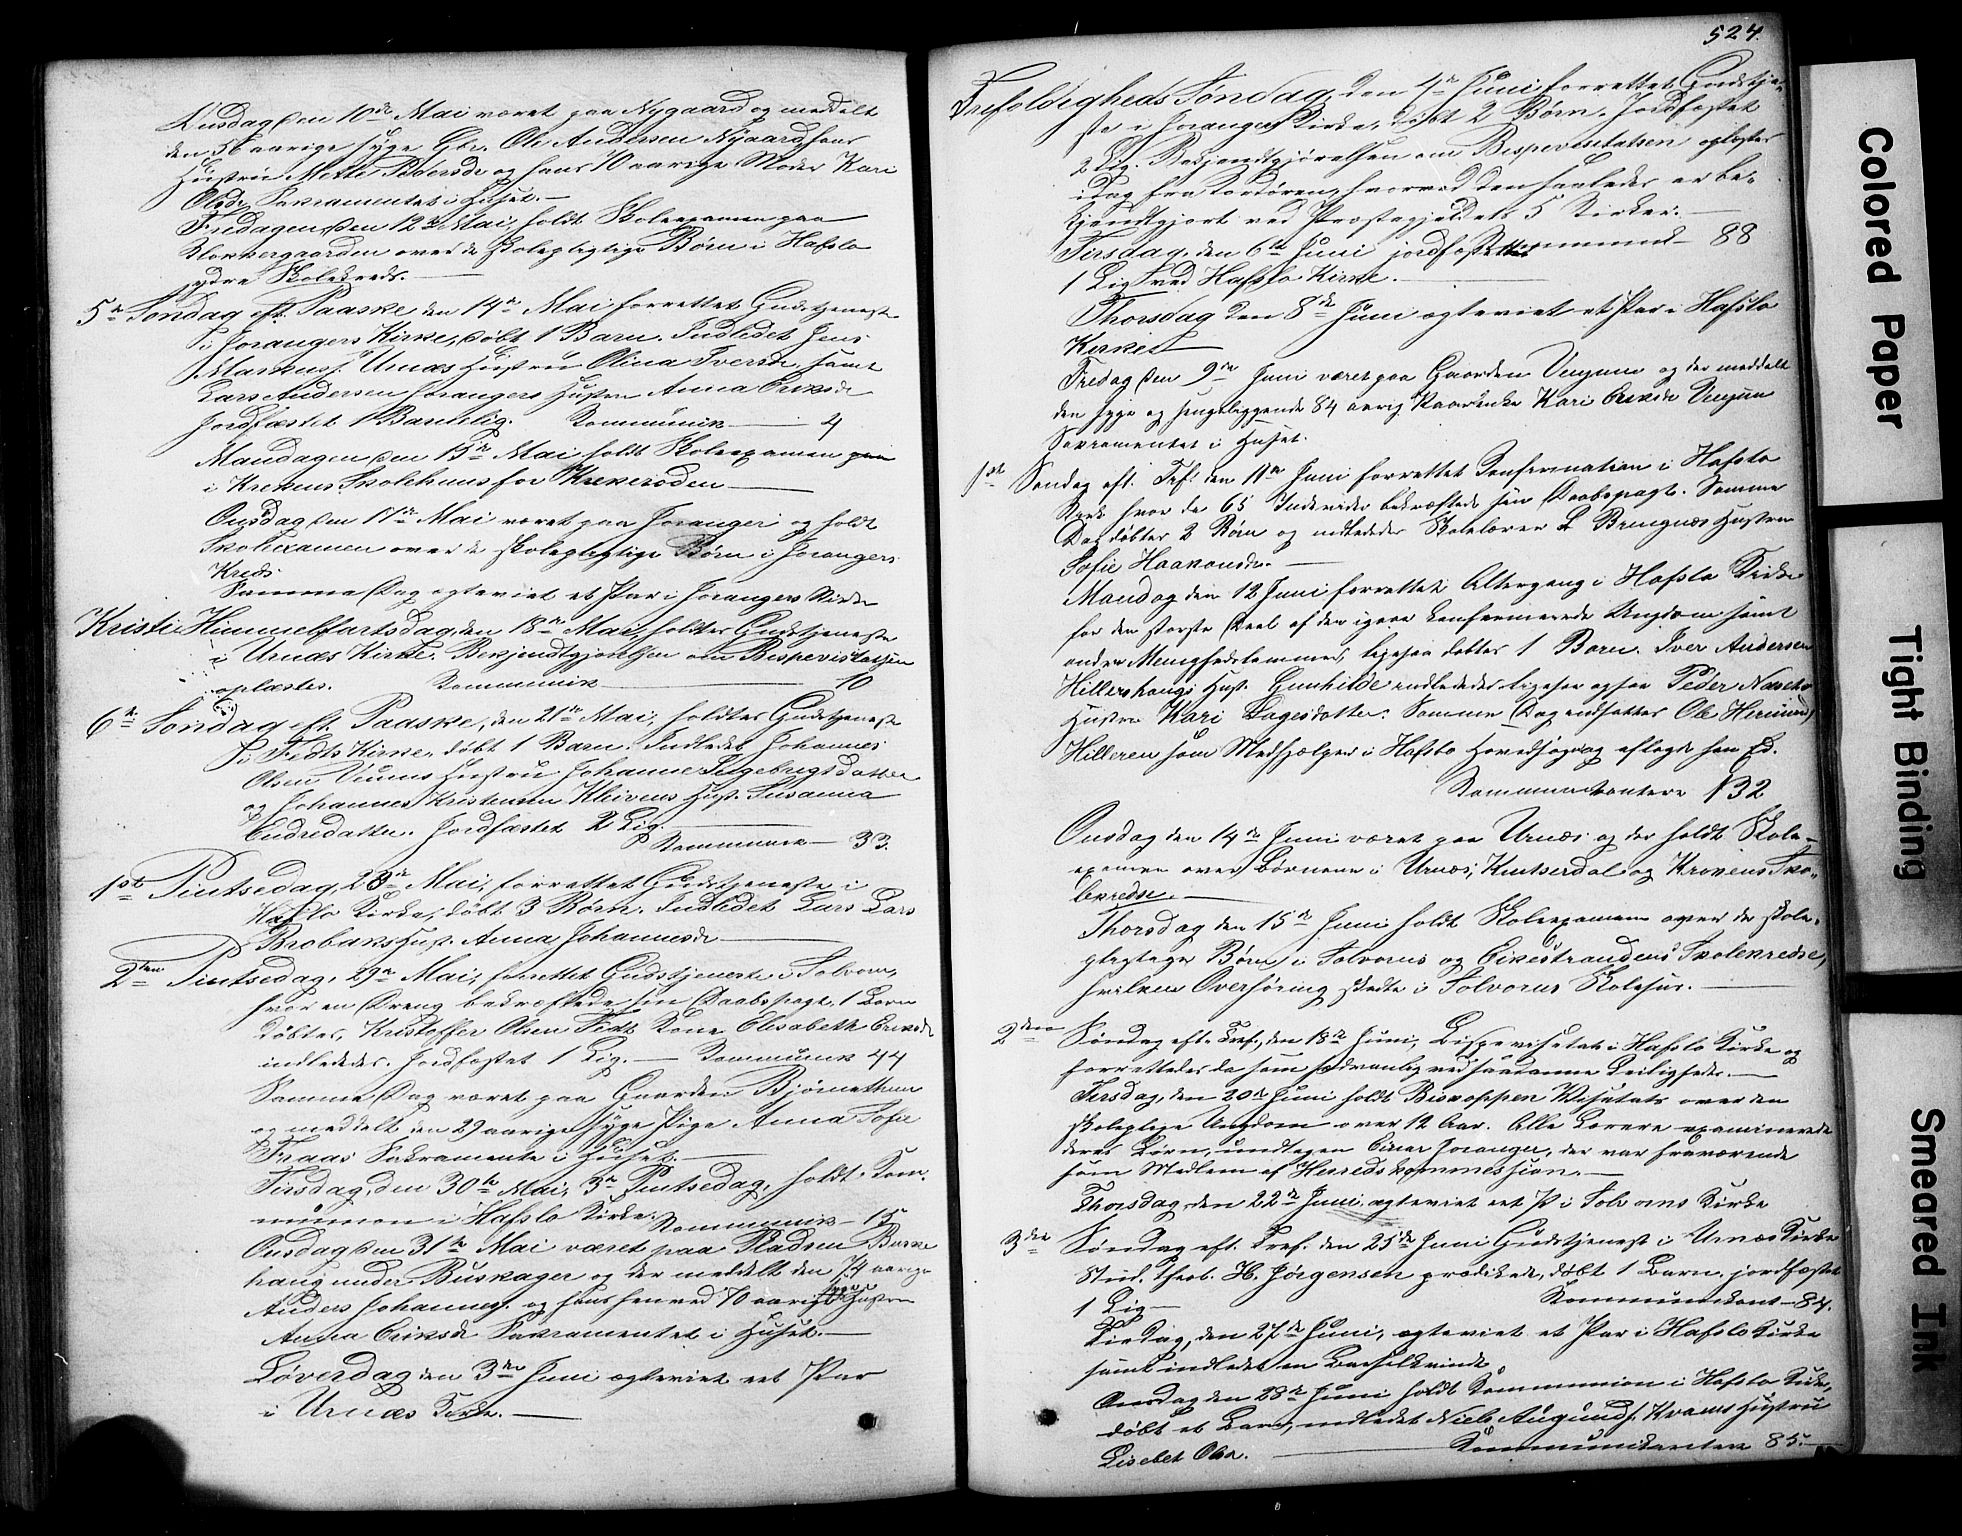 Onsdag den 10de Mai været paa Nygaard og meddelt
den 56 aarige syge Gbr. Ole Andersen Nygaard, hans
Hustru Mette Pedersdr og hans 70 aarige Moder Kari
Olsdr Sakramentet i Huset.
Fredagen den 12te Mai, holdt Skoleexamen paa
Klokkergaarden over de skolepligtige Børn i Hafslo
ydre Skolekreds.
5te Søndag eft. Paaske den 14de Mai forrettet Gudstjeneste
i Joranger Kirke, døbt 1 Barn. Indledet Jens
Markus. Urnæs Hustru Olina Iversdr, samt
Lars Andersen Jorangers Hustru Anna Eriksdr
Jordfæstet 1 Barnelig. Kommunik 4
Mandagen den 15de Mai holdt Skoleexamen paa
i Krekens Skolehuus for Krekeroden
Onsdag den 17de Mai været paa Joranger og holdt
Skoleexamen over de skolepligtige Børn i Jorangers
Kreds.
Samme Dag egteviet et Par i Jorangers Kirke
Kristi Himmelfartsdag, den 18de Mai, holdtes Gudstjeneste
i Urnæs Kirke. Bekjendtgjørelsen om Bispevisitatsen
oplæstes. Kommunik 10
6te Søndag eft. Paaske, den 21de Mai, holdtes Gudstjeneste
i Fedts Kirke, døbt 1 Barn. Indledet Johannes
Olsen Hustru Johanne
og Johannes Kristensen Kleivens Hust. Susanna
Endredatter. Jordfæstet 2 Lig.
Kommunik 33.
1ste Pintsedag, 28de Mai, forrettet Gudstjeneste i
Hafslo Kirke, døbt 3 Børn. Indledet Lars Lars
Brobaks Hust. Anna Johannesdr
2den Pintsedag, 29de Mai, forrettet Gudstjeneste i Solvorn,
hvor en Dreng bekræftede sin Daabspagt, 1 Barn
døbtes, Kristoffer Olsen Fedt Kone Elisabeth Eriksdr
indlededes. Jordfæstet 1 Lig. Kommunik 44
Samme Dag været paa Gaarden Bjørnethun
og meddelt den 29 aarige syge Pige Anna Sofie
Fraas Sakramentet i Huset.
Tirsdag, den 30te Mai, 3de Pintsedag, holdt Kom-
munion i Hafslo Kirke. Kommunik 15
Onsdag den 31te Mai været paa Pladsen Barke
haug under Buskager og der meddelt den 74 aarige
Anders Johannes. og hans henved 70 aarige syge Hustru
Anna Eriksdr Sakramentet i Huset.
Løverdag den 3de Juni egteviet et Par
i Urnæs Kirke.
524.
Trefoldigheds Søndag, den 4de Juni forrettet Gudstje-
ste i Jorangers Kirke, døbt 2 Børn. Jordfæstet
2 Lig. Bekjendtgjørelsen om Bispevisitatsen oplæstes
idag fra Kordøren, hvorved den saaledes er be-
kjendtgjort ved Præstegjeldets 5 Kirker.
Kommunik 88
Tirsdag, den 6te Juni jordfæstet
1 Lig ved Hafslo Kirke.
Thorsdag den 8de Juni egteviet et Par i Hafslo
Kirke
Fredag den 9de Juni været paa Gaarden Venjum og der meddelt
den syge og sengeliggende 84 aarig Kaarenke Kari Eriksdr Venjum
Sakramentet i Huset.
1ste Søndag eft. Tref. den 11te Juni forrettet Konfirmation i Hafslo
Kirk hvor de 65 Individer bekræftede sin Daabspagt. Samme
Dag døbtes 2 Børn og indledede Skolelærer L Bringnæs Hustru
Sofie Haakonsdr.
Mandag den 12 Juni forrettet Altergang i Hafslo Kirke
for den største Deel af den igaar konfirmerede Ungdom samt
andre Menighedslemmer, ligesaa døbtes 1 Barn. Iver Andersen
Hillershaugs Hust. Gunhilde indlededes ligesaa ogsaa Peder
Hustru Kari Lagesdatter. Samme Dag indsattes Ole Hermunds
Hilleren som Medhjælper i Hafslo Hovedsogn og aflagde sin Ed.
Kommunikantere 132
Onsdag den 14de Juni været paa Urnæs og der holdt Skole-
examen over Børnene i Urnæs, Kintserdal og Krokens Sko-
lekredse.
Thorsdag den 15de Juni holdt Skoleexamen over de skole-
pligtige Børn i Solvorns og Eikestrandens Skolekredse,
hvilken Overhøring skedte i Solvorns Skolehus.
2den Søndag eft. Tref., den 18de Juni, Bispevisitats i Hafslo Kirke og
forrettedes da som sædvanlig ved saadanne Leiligheder.
Tirsdag, den 20de Juni holdt Biskoppen Visitats over den
skolepligtige Ungdom over 12 Aar. Alle Lærere examinerede
deres Børn, undtagen Einar Joranger, der var fraværende
som Medlem af Herredskommissionen.
Thorsdag den 22de Juni egteviet et P i Solvorns Kirke
3die Søndag eft. Tref. den 25de Juni Gudstjenest i Urnæs Kirke
Stud. theol. H. Jørgensen prædikede, døbt 1 Barn. jordfæstet
1 Lig Kommunikant 84.
Tirsdag, den 27de Juni, egteviet et Par i Hafslo Kirke
samt indledet en Barselkvinde
Onsdag den 28de Juni holdt Kommunion i Hafslo Kirke,
døbt et Barn, indledet Niels Augunds. Kvams Hustru
Lisebet Olsdr. Kommunikantere 85.
Colored Paper
Tight Binding
Smeared Ink